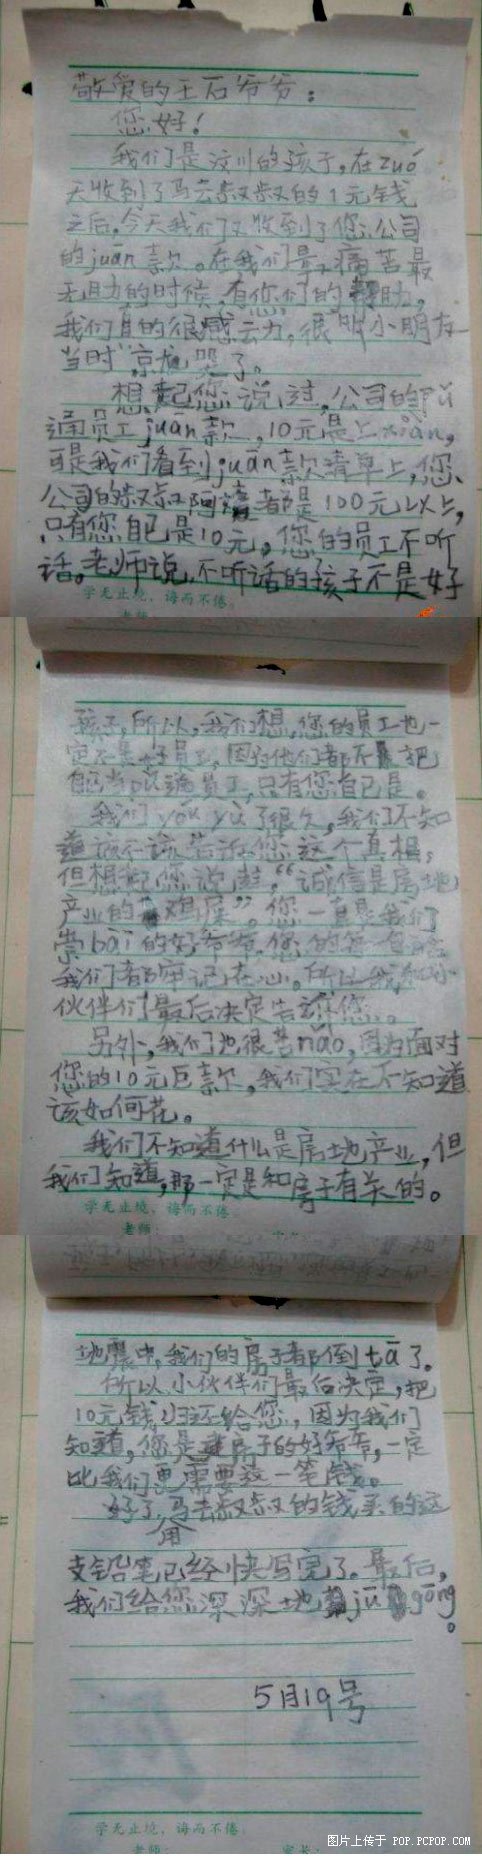 敬爱的王石爷爷：
您好！
我们是汶川的孩子，在zuó
天收到了马云叔叔的1元钱
之后，今天我们又收到了您公司
的juān款。在我们最痛苦最
无助的时候，有您们的帮助，
我们真的很感动，很 小朋友
当时 哭了。
想起您说过，公司的pǔ
通员工juān款，10元是上xiàn，
可是我们看到juān款清单上，您
公司的叔叔阿姨都是100元以上，
只有您自己是10元。您的员工不听
话。老师说，不听话的孩子不是好
学无止境，诲而不倦。
老师：
孩子，所以，我们想，您的员工也一
定不是好员工，因为他们都不把
自己当pǔ通员工，只有您自己是。
我们yóu yù了很久，我们不知
道该不该告诉您这个真相，
但想起您说过，“诚信是房地
产业的 ”。您一直是我们
崇bài的好爷爷，您的每一句话
我们都牢记在心。所以我和小
伙伴们最后决定告诉您。
另外，我们也很苦nǎo，因为面对
您的10元巨款，我们实在不知道
该如何花。
我们不知道什么是房地产业，但
我们知道，那一定是和房子有关的。
学无止境，诲而不倦。
老师：
地震中，我们的房子都倒tā了。
所以，小伙伴们最后决定，把
10元钱还给您，因为我们
知道，您是建房子的好爷爷，一定
比我们更需要这一笔钱。
好了，用马云叔叔的钱买的这
支铅笔已经快写完了。最后，
我们给您深深地jū gōng。
5月19号
学无止境，诲而不倦。
老师： 家长：
图片上传于 POP.PCPOP.COM